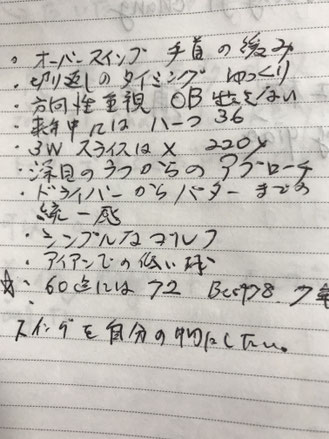 ・オーバースイング 手首の緩み
・切り返しのタイミング ゆっくり
・方向性重視 OB 打たない
・来年中には ハーフ 36
・3W スライスは X 220Y
・深目のラフからのアプローチ
・ドライバーからパターまでの
統一感
・シンプルなゴルフ
・アイアンでの低い球
☆・60点には 72 Best78
スイングを自分の物にしたい。